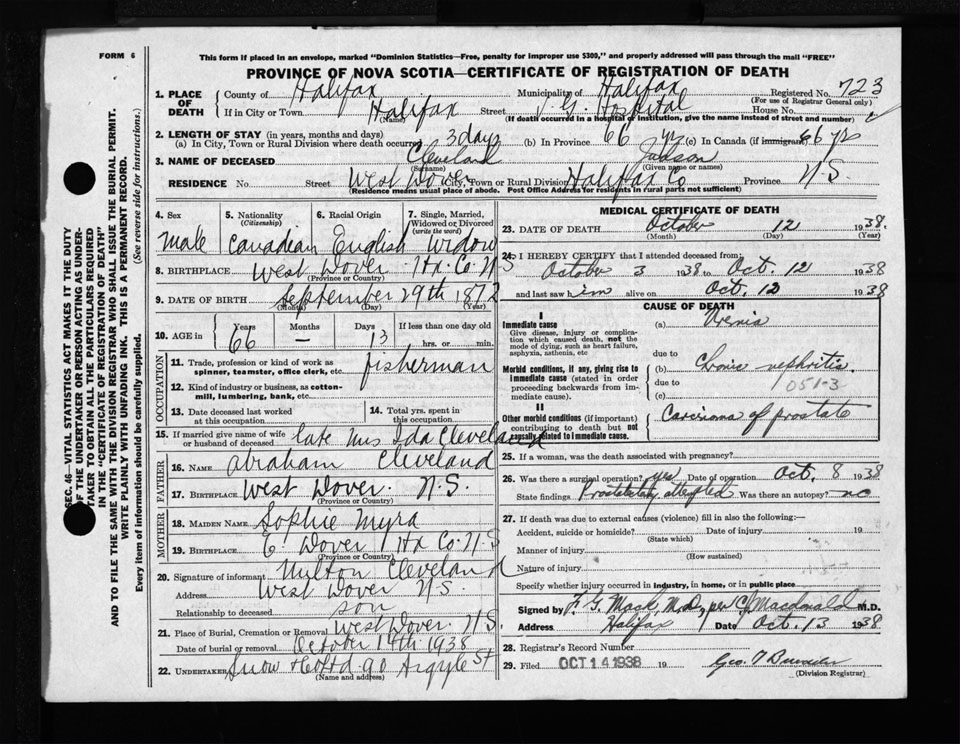 FORM 6
This form if placed in an envelope, marked "Dominion Statistics—Free, penalty for improper use $300," and properly addressed will pass through the mail "FREE"
PROVINCE OF NOVA SCOTIA—CERTIFICATE OF REGISTRATION OF DEATH
1. PLACE OF DEATH
County of Halifax Municipality of Halifax Registered No. 723
(For use of Registrar General only)
If in City or Town Halifax Street V.G. Hospital House No.
(Name) (If death occurred in a hospital or institution, give the name instead of street and number)
2. LENGTH OF STAY (in years, months and days)
(a) In City, Town or Rural Division where death occurred 3 days (b) In Province 66 yrs (c) In Canada (if immigrant) 66 yrs
3. NAME OF DECEASED Cleveland Judson
(Surname) (Given name or names)
RESIDENCE No. Street West Dover City, Town or Rural Division Halifax Co Province N.S.
(Residence means usual place of abode. Post Office Address for residents in rural parts not sufficient)
4. Sex male
5. Nationality (Citizenship) Canadian
6. Racial Origin English
7. Single, Married, Widowed or Divorced (write the word) Widow
8. BIRTHPLACE West Dover Hx. Co. N S
(Province or Country)
9. DATE OF BIRTH September 29th 1872
(Month) (Day) (Year)
10. AGE in Years 66 Months — Days 13 If less than one day old hrs. or min.
OCCUPATION
11. Trade, profession or kind of work as spinner, teamster, office clerk, etc. fisherman
12. Kind of industry or business, as cotton-mill, lumbering, bank, etc.
13. Date deceased last worked at this occupation
14. Total yrs. spent in this occupation
15. If married give name of wife or husband of deceased late Mrs Ida Cleveland
FATHER
16. NAME Abraham Cleveland
17. BIRTHPLACE West Dover. N.S.
(Province or Country)
MOTHER
18. MAIDEN NAME Sophie Myra
19. BIRTHPLACE E. Dover Hx Co. N.S
(Province or Country)
20. Signature of informant Milton Cleveland
Address West Dover N.S.
Relationship to deceased son
21. Place of Burial, Cremation or Removal West Dover. N.S.
Date of burial or removal October 14th 1938
22. UNDERTAKER Snow & Co Ltd 90 Argyle St
(Name and address)
MEDICAL CERTIFICATE OF DEATH
23. DATE OF DEATH October 12 1938
(Month) (Day) (Year)
24. I HEREBY CERTIFY that I attended deceased from:
October 3 1938 to Oct. 12 1938
and last saw him alive on Oct. 12 1938
CAUSE OF DEATH
I
Immediate cause
Give disease, injury or complication which caused death, not the mode of dying, such as heart failure, asphyxia, asthenia, etc
(a) Uremia
due to
Morbid conditions, if any, giving rise to immediate cause (stated in order proceeding backwards from immediate cause).
(b) Chronic nephritis
due to 051-3
(c)
II
Other morbid conditions (if important) contributing to death but not causally related to immediate cause.
Carcinoma of prostate
25. If a woman, was the death associated with pregnancy?
26. Was there a surgical operation? yes Date of operation Oct. 8 1938
State findings Prostatectomy attempted Was there an autopsy? no
27. If death was due to external causes (violence) fill in also the following:—
Accident, suicide or homicide? Date of injury 19
(State which)
Manner of injury
(How sustained)
Nature of injury
Specify whether injury occurred in industry, in home, or in public place
Signed by F. G. Mack, M.D., per C.J. Macdonald M.D.
Address Halifax Date Oct. 13 1938
28. Registrar's Record Number
29. Filed OCT 14 1938
(Division Registrar)
SEC. 46—VITAL STATISTICS ACT MAKES IT THE DUTY
OF THE UNDERTAKER OR PERSON ACTING AS UNDER-
TAKER TO OBTAIN ALL THE PARTICULARS REQUIRED
IN THE "CERTIFICATE OF REGISTRATION OF DEATH"
AND TO FILE THE SAME WITH THE DIVISION REGISTRAR WHO SHALL ISSUE THE BURIAL PERMIT.
WRITE PLAINLY WITH UNFADING INK. THIS IS A PERMANENT RECORD.
Every item of information should be carefully supplied. (See reverse side for instructions.)